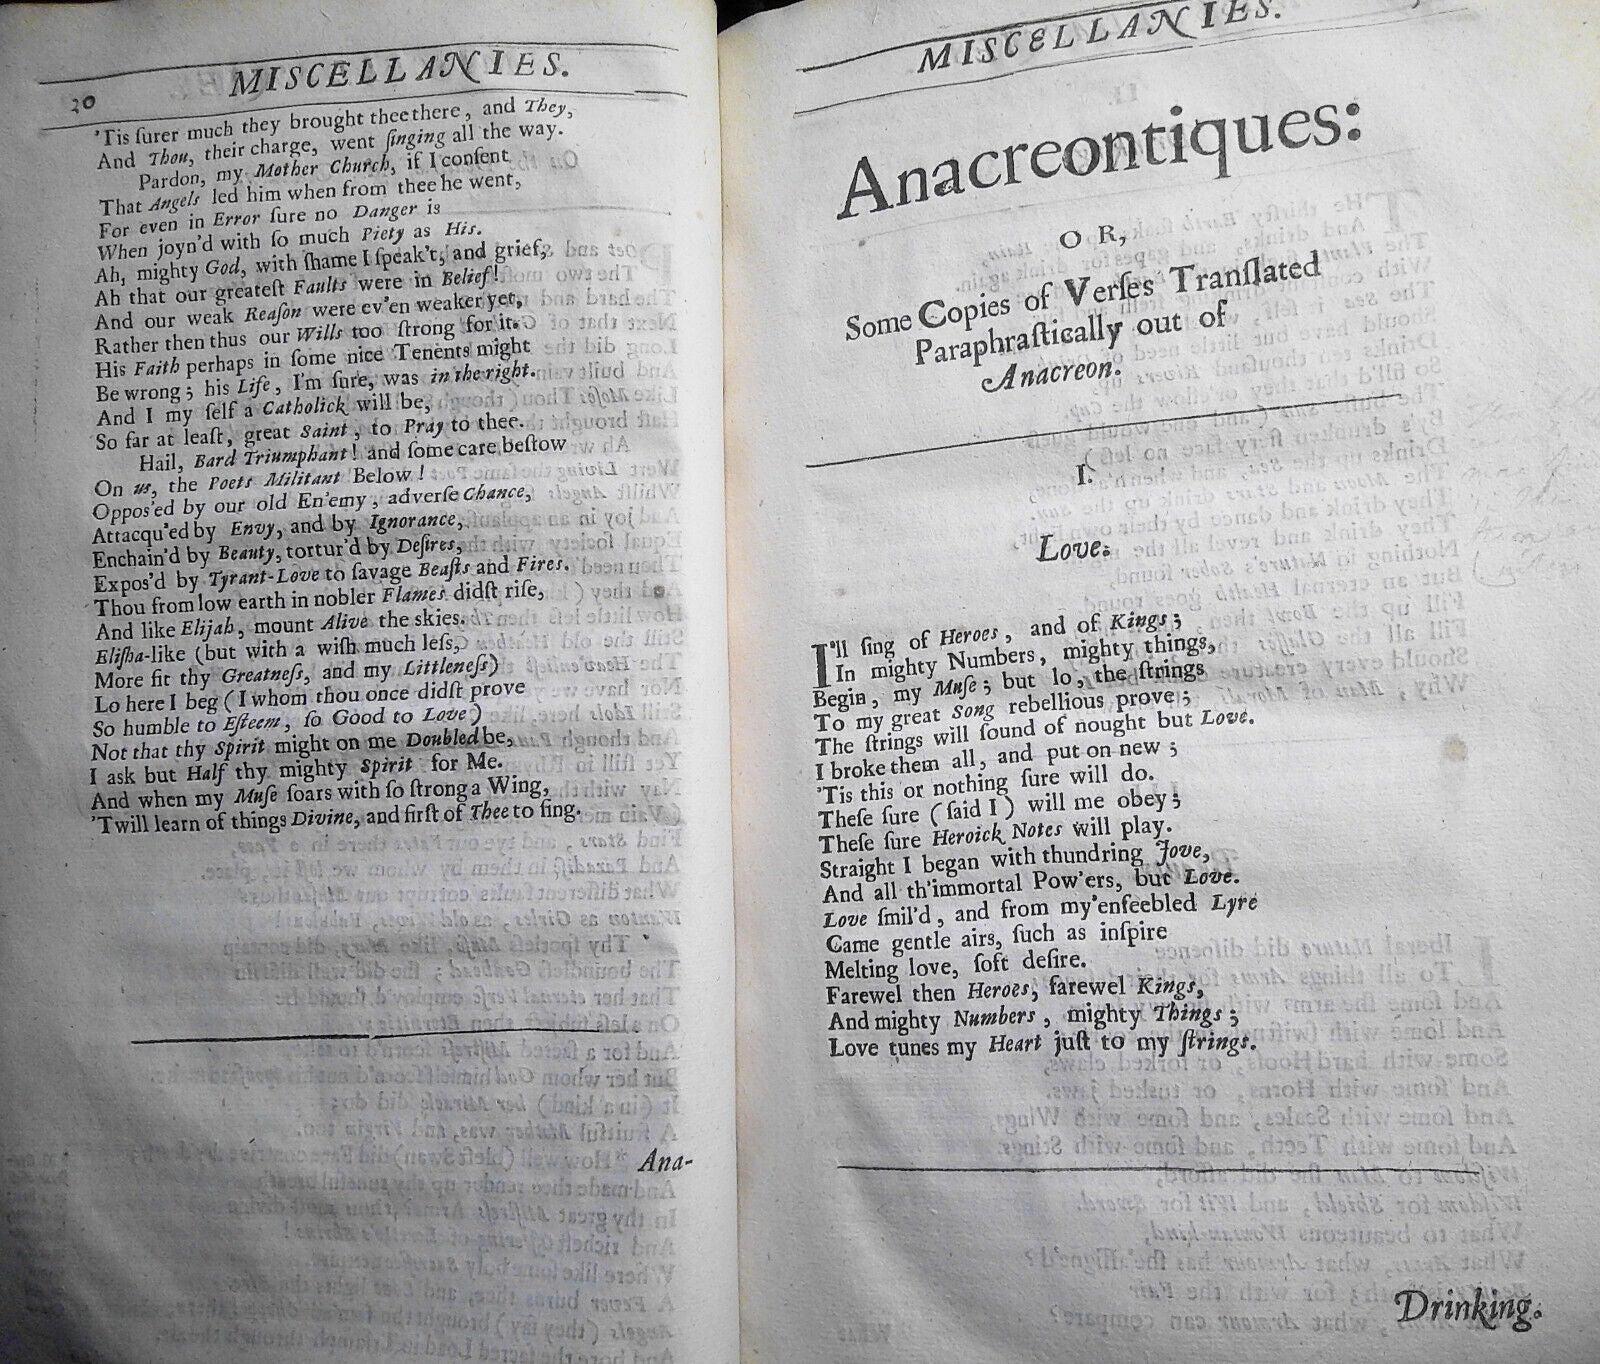 30
MISCELLANIES.
'Tis ſurer much they brought thee there, and They,
And Thou, their charge, went ſinging all the way.
Pardon, my Mother Church, if I conſent
That Angels led him when from thee he went,
For even in Error ſure no Danger is
When joyn'd with ſo much Piety as His.
Ah, mighty God, with ſhame I ſpeak't, and grief,
Ah that our greateſt Faults were in Belief!
And our weak Reaſon were ev'en weaker yet,
Rather then thus our Wills too ſtrong for it.
His Faith perhaps in ſome nice Tenents might
Be wrong; his Life, I'm ſure, was in the right.
And I my ſelf a Catholick will be,
So far at leaſt, great Saint, to Pray to thee.
Hail, Bard Triumphant! and ſome care beſtow
On us, the Poets Militant Below!
Oppos'ed by our old En'emy, adverſe Chance,
Attacqu'ed by Envy, and by Ignorance,
Enchain'd by Beauty, tortur'd by Deſires,
Expos'd by Tyrant-Love to ſavage Beaſts and Fires.
Thou from low earth in nobler Flames didſt riſe,
And like Elijah, mount Alive the skies.
Eliſha-like (but with a wiſh much leſs,
More fit thy Greatneſs, and my Littleneſs)
Lo here I beg (I whom thou once didſt prove
So humble to Eſteem, ſo Good to Love)
Not that thy Spirit might on me Doubled be,
I ask but Half thy mighty Spirit for Me.
And when my Muſe ſoars with ſo ſtrong a Wing,
'Twill learn of things Divine, and firſt of Thee to ſing.
Ana-
MISCELLANIES.
Anacreontiques:
OR,
Some Copies of Verſes Tranſlated
Paraphraſtically out of
Anacreon.
I.
Love.
I'll ſing of Heroes, and of Kings;
In mighty Numbers, mighty things,
Begin, my Muſe; but lo, the ſtrings
To my great Song rebellious prove;
The ſtrings will ſound of nought but Love.
I broke them all, and put on new;
'Tis this or nothing ſure will do.
Theſe ſure (ſaid I) will me obey;
Theſe ſure Heroick Notes will play.
Straight I began with thundring Jove,
And all th'immortal Pow'ers, but Love.
Love ſmil'd, and from my'enfeebled Lyre
Came gentle airs, ſuch as inſpire
Melting love, ſoft deſire.
Farewel then Heroes, farewel Kings,
And mighty Numbers, mighty Things;
Love tunes my Heart juſt to my ſtrings.
Drinking.